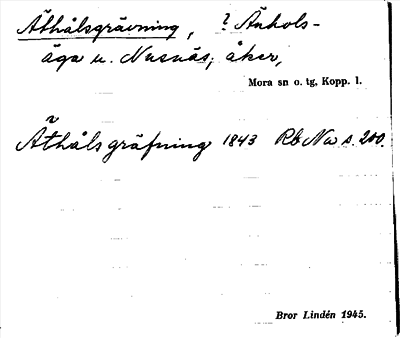 Äthålsgrävning, ? Änhols-
äga u. Nusnäs; åker,
Mora sn o. tg, Kopp. l.
Äthåls gräfning 1843 Rb Nu s. 200.
Bror Lindén 1945.